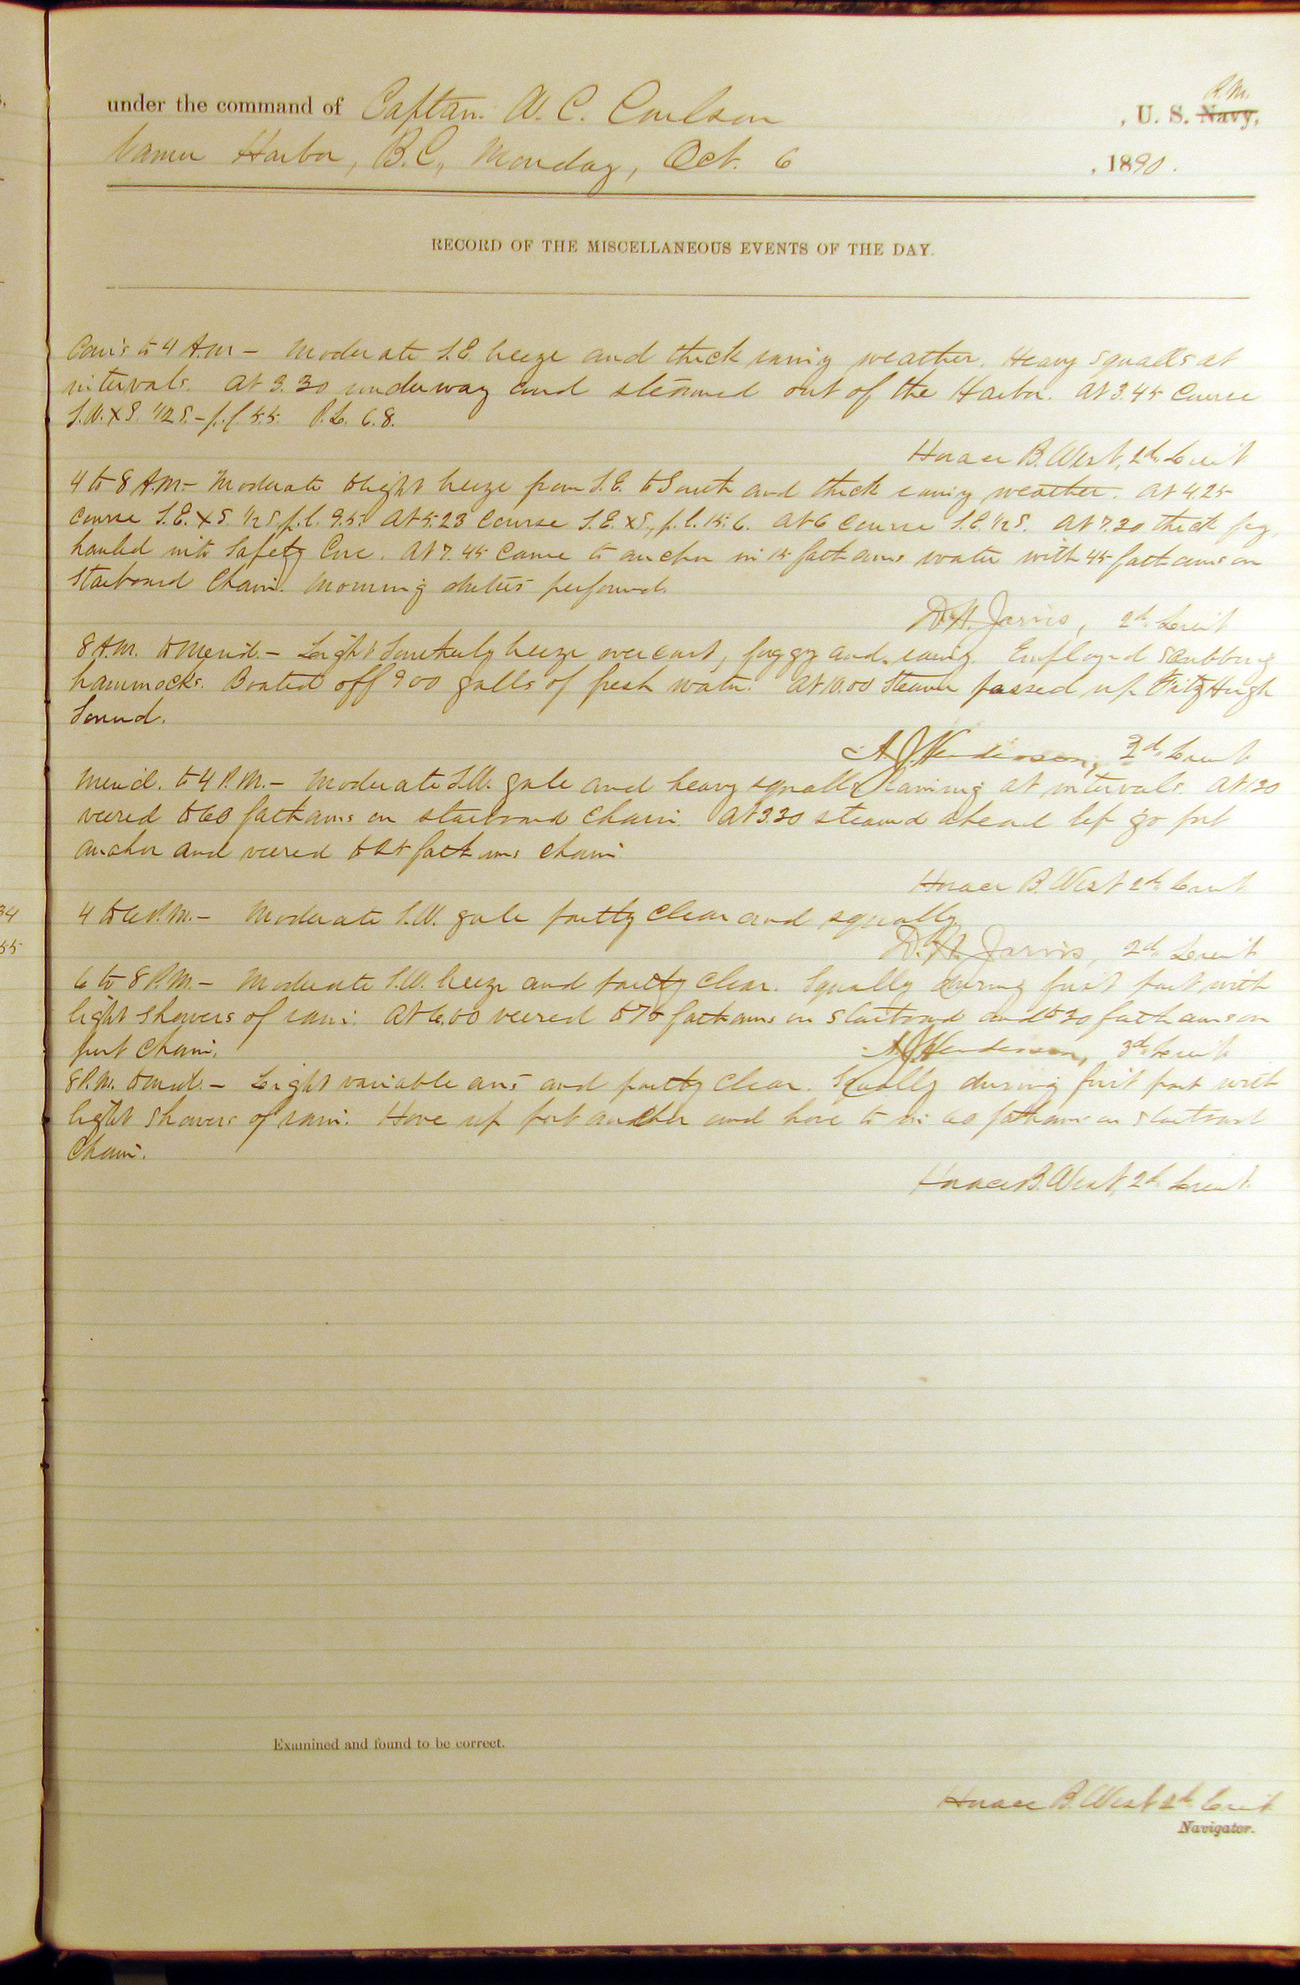 under the command of Captain W. C. Coulson , U. S. Navy, R.M.
Namu Harbor, B.C., Monday, Oct. 6 , 1890.
RECORD OF THE MISCELLANEOUS EVENTS OF THE DAY.
Com's to 4 A.M – Moderate S.E. breeze and thick rainy weather. Heavy squalls at
intervals. At 3.30 underway and steamed out of the Harbor. At 3.45 course
S.W. X S. 1/2 S. – p.l. 55. P.L. 6.8.
Horace B. West, 2d. Lieut
4 to 8 A.M. – Moderate to light breeze from S.E. to South and thick rainy weather. At 4.25
course S.E. X S. 1/2 S. p.l. 9.5. At 5.23 course S.E. X S., p.l. 15.6. At 6 course S.E. 1/2 S. At 7.30 thick fog,
hauled into Safety Cove. At 7.45 came to anchor in 15 fathoms water with 45 fathoms on
starboard chain. Morning duties performed.
D. H. Jarvis, 2d. Lieut
8 A.M. to Merid. – Light Southerly breeze overcast, foggy and rainy. Employed scrubbing
hammocks. Boated off 900 galls of fresh water. At 10.00 steamer passed up Fitz Hugh
Sound.
A. J. Henderson, 3d. Lieut
Merid. to 4 P.M. – Moderate S.W. gale and heavy squalls raining at intervals. At 1.30
veered to 60 fathoms on starboard chain. At 3.30 steamed ahead let go port
anchor and veered to fathoms chain.
Horace B. West 2d. Lieut
34
4 to 6 P.M. – Moderate S.W. gale partly clear and squally.
D. H. Jarvis, 2d. Lieut
55
6 to 8 P.M. – Moderate S.W. breeze and partly clear. Squally during first part with
light showers of rain. At 6.00 veered to 75 fathoms on starboard and to 30 fathoms on
port chain.
A. J. Henderson, 3d. Lieut
8 P.M. to mid. – Light variable airs and partly clear. Squally during first part with
light showers of rain. Hove up port anchor and hove to in 60 fathoms on starboard
chain.
Horace B. West, 2d. Lieut.
Examined and found to be correct.
Horace B. West 2d. Lieut
Navigator.